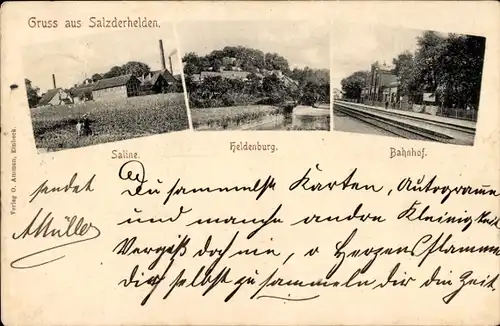 Gruss aus Salzderhelden.
Saline.
Heldenburg.
Bahnhof.
Verlag O. Ammon, Einbeck.
sendet
A Müller
Du sammelst Karten, Autogramme
und manche andre Kleinigkeit
Vergiß doch nie, o Herzensflamme
Dir selbst zu sammeln, dir die Zeit.